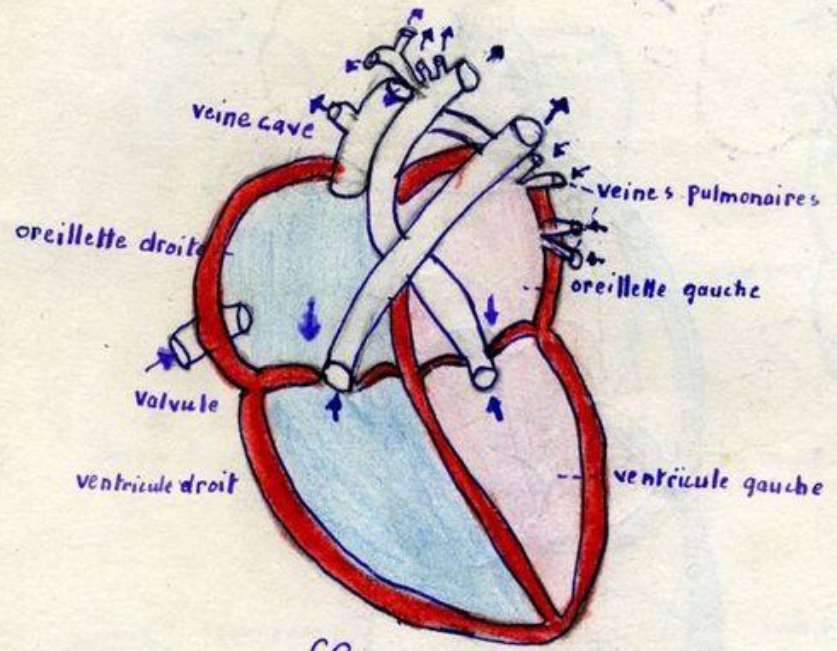 veine cave
veines pulmonaires
oreillette droite
oreillette gauche
valvule
ventricule droit
ventricule gauche